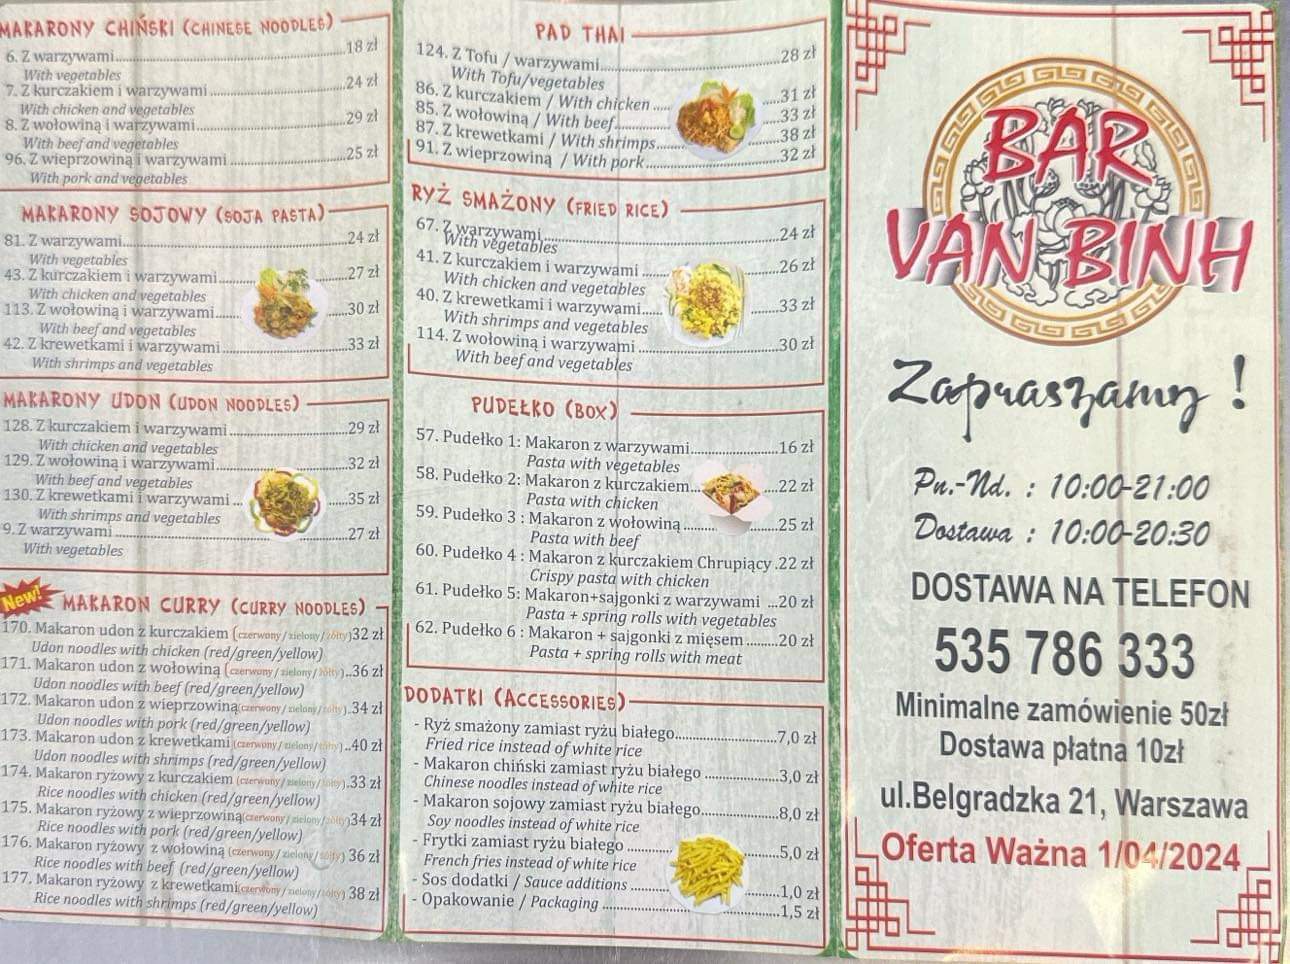 MAKARONY CHIŃSKI (CHINESE NOODLES)
6. Z warzywami 18 zł
With vegetables
7. Z kurczakiem i warzywami 24 zł
With chicken and vegetables
8. Z wołowiną i warzywami 29 zł
With beef and vegetables
96. Z wieprzowiną i warzywami 25 zł
With pork and vegetables
MAKARONY SOJOWY (SOJA PASTA)
81. Z warzywami 24 zł
With vegetables
43. Z kurczakiem i warzywami 27 zł
With chicken and vegetables
113. Z wołowiną i warzywami 30 zł
With beef and vegetables
42. Z krewetkami i warzywami 33 zł
With shrimps and vegetables
MAKARONY UDON (UDON NOODLES)
128. Z kurczakiem i warzywami 29 zł
With chicken and vegetables
129. Z wołowiną i warzywami 32 zł
With beef and vegetables
130. Z krewetkami i warzywami 35 zł
With shrimps and vegetables
9. Z warzywami 27 zł
With vegetables
New! MAKARON CURRY (CURRY NOODLES)
170. Makaron udon z kurczakiem (czerwony / zielony / żółty) 32 zł
Udon noodles with chicken (red/green/yellow)
171. Makaron udon z wołowiną (czerwony / zielony / żółty)..36 zł
Udon noodles with beef (red/green/yellow)
172. Makaron udon z wieprzowiną(czerwony / zielony / żółty).34 zł
Udon noodles with pork (red/green/yellow)
173. Makaron udon z krewetkami (czerwony / zielony / żółty)..40 zł
Udon noodles with shrimps (red/green/yellow)
174. Makaron ryżowy z kurczakiem (czerwony / zielony / żółty).33 zł
Rice noodles with chicken (red/green/yellow)
175. Makaron ryżowy z wieprzowiną(czerwony / zielony / żółty)34 zł
Rice noodles with pork (red/green/yellow)
176. Makaron ryżowy z wołowiną (czerwony / zielony / żółty) 36 zł
Rice noodles with beef (red/green/yellow)
177. Makaron ryżowy z krewetkami(czerwony / zielony / żółty) 38 zł
Rice noodles with shrimps (red/green/yellow)
PAD THAI
124. Z Tofu / warzywami 28 zł
With Tofu/vegetables
86. Z kurczakiem / With chicken 31 zł
85. Z wołowiną / With beef 33 zł
87. Z krewetkami / With shrimps 38 zł
91. Z wieprzowiną / With pork 32 zł
RYŻ SMAŻONY (FRIED RICE)
67. Z warzywami 24 zł
With vegetables
41. Z kurczakiem i warzywami 26 zł
With chicken and vegetables
40. Z krewetkami i warzywami 33 zł
With shrimps and vegetables
114. Z wołowiną i warzywami 30 zł
With beef and vegetables
PUDEŁKO (BOX)
57. Pudełko 1: Makaron z warzywami 16 zł
Pasta with vegetables
58. Pudełko 2: Makaron z kurczakiem 22 zł
Pasta with chicken
59. Pudełko 3 : Makaron z wołowiną 25 zł
Pasta with beef
60. Pudełko 4 : Makaron z kurczakiem Chrupiący .22 zł
Crispy pasta with chicken
61. Pudełko 5: Makaron+sajgonki z warzywami ...20 zł
Pasta + spring rolls with vegetables
62. Pudełko 6 : Makaron + sajgonki z mięsem 20 zł
Pasta + spring rolls with meat
DODATKI (ACCESSORIES)
- Ryż smażony zamiast ryżu białego 7,0 zł
Fried rice instead of white rice
- Makaron chiński zamiast ryżu białego 3,0 zł
Chinese noodles instead of white rice
- Makaron sojowy zamiast ryżu białego 8,0 zł
Soy noodles instead of white rice
- Frytki zamiast ryżu białego 5,0 zł
French fries instead of white rice
- Sos dodatki / Sauce additions 1,0 zł
- Opakowanie / Packaging 1,5 zł
BAR
VAN BINH
Zapraszamy !
Pn.-Nd. : 10:00-21:00
Dostawa : 10:00-20:30
DOSTAWA NA TELEFON
535 786 333
Minimalne zamówienie 50zł
Dostawa płatna 10zł
ul.Belgradzka 21, Warszawa
Oferta Ważna 1/04/2024